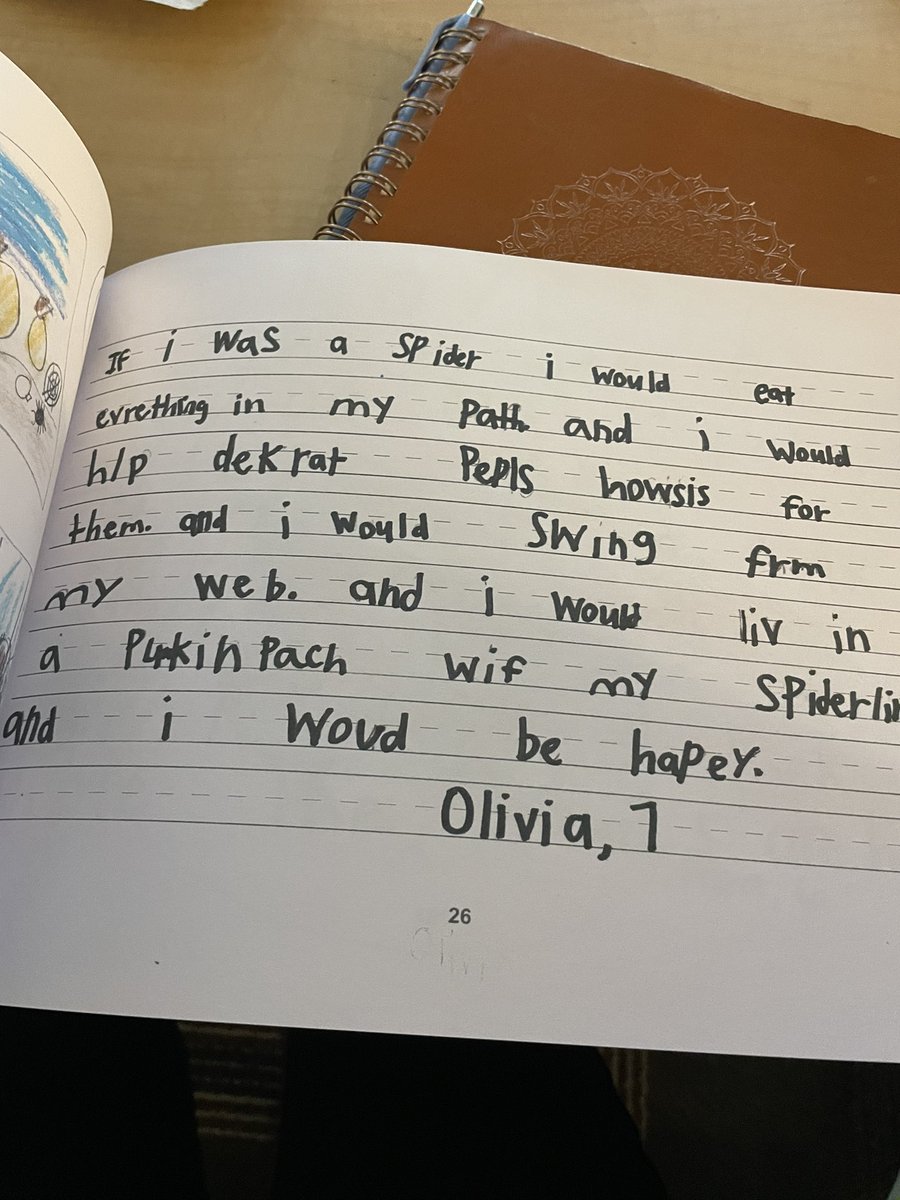 If i was a spider i would eat
evrething in my path and i would
hlp dekrat Pepls howsis for
them. and i would swing frm
my web. and i would liv in
a Punkin Pach wif my spiderlin
and i woud be hapey.
Olivia, 7
26
Olivi